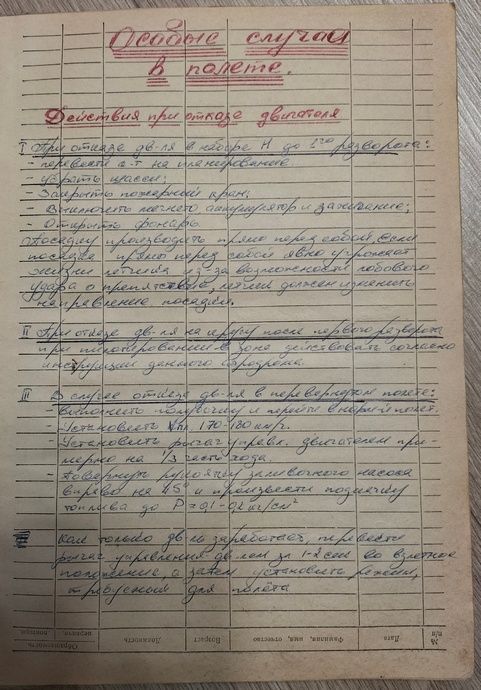 Особые случаи
в полете.
Действия при отказе двигателя
I При отказе дв-ля в наборе Н до 1го разворота:
- перевести с-т на планирование
- убрать шасси;
- Закрыть пожарный кран;
- Выключить магнето, аккумулятор и зажигание;
- Открыть фонарь
Посадку производить прямо перед собой, Если
посадка прямо перед собой явно угрожает
жизни летчика из-за возможности лобового
удара о препятствие, летчик должен изменить
направление посадки.
II При отказе дв-ля на кругу после первого разворота
при пилотировании в зоне действовать согласно
инструкции данного аэродрома.
III В случае отказа дв-ля в перевернутом полете:
- выполнить полубочку и перейти в норм-й полет.
- Установить Vпл. 170-180 км/ч.
- Установить рычаг управл. двигателем при-
мерно на 1/3 части хода.
- Повернуть рукоятку заливочного насоса
вправо на 45° и произвести подкачку
топлива до Р=0,1-0,2 кг/см²
Как только дв-ль заработает, перевести
рычаг управления дв-лем за 1-2 сек во взлетное
положение, а затем установить режим,
требуемый для полёта
№ п/п
Дата
Фамилия, имя, отчество
Возраст
Должность
Обращаемость
первичн.
повторн.